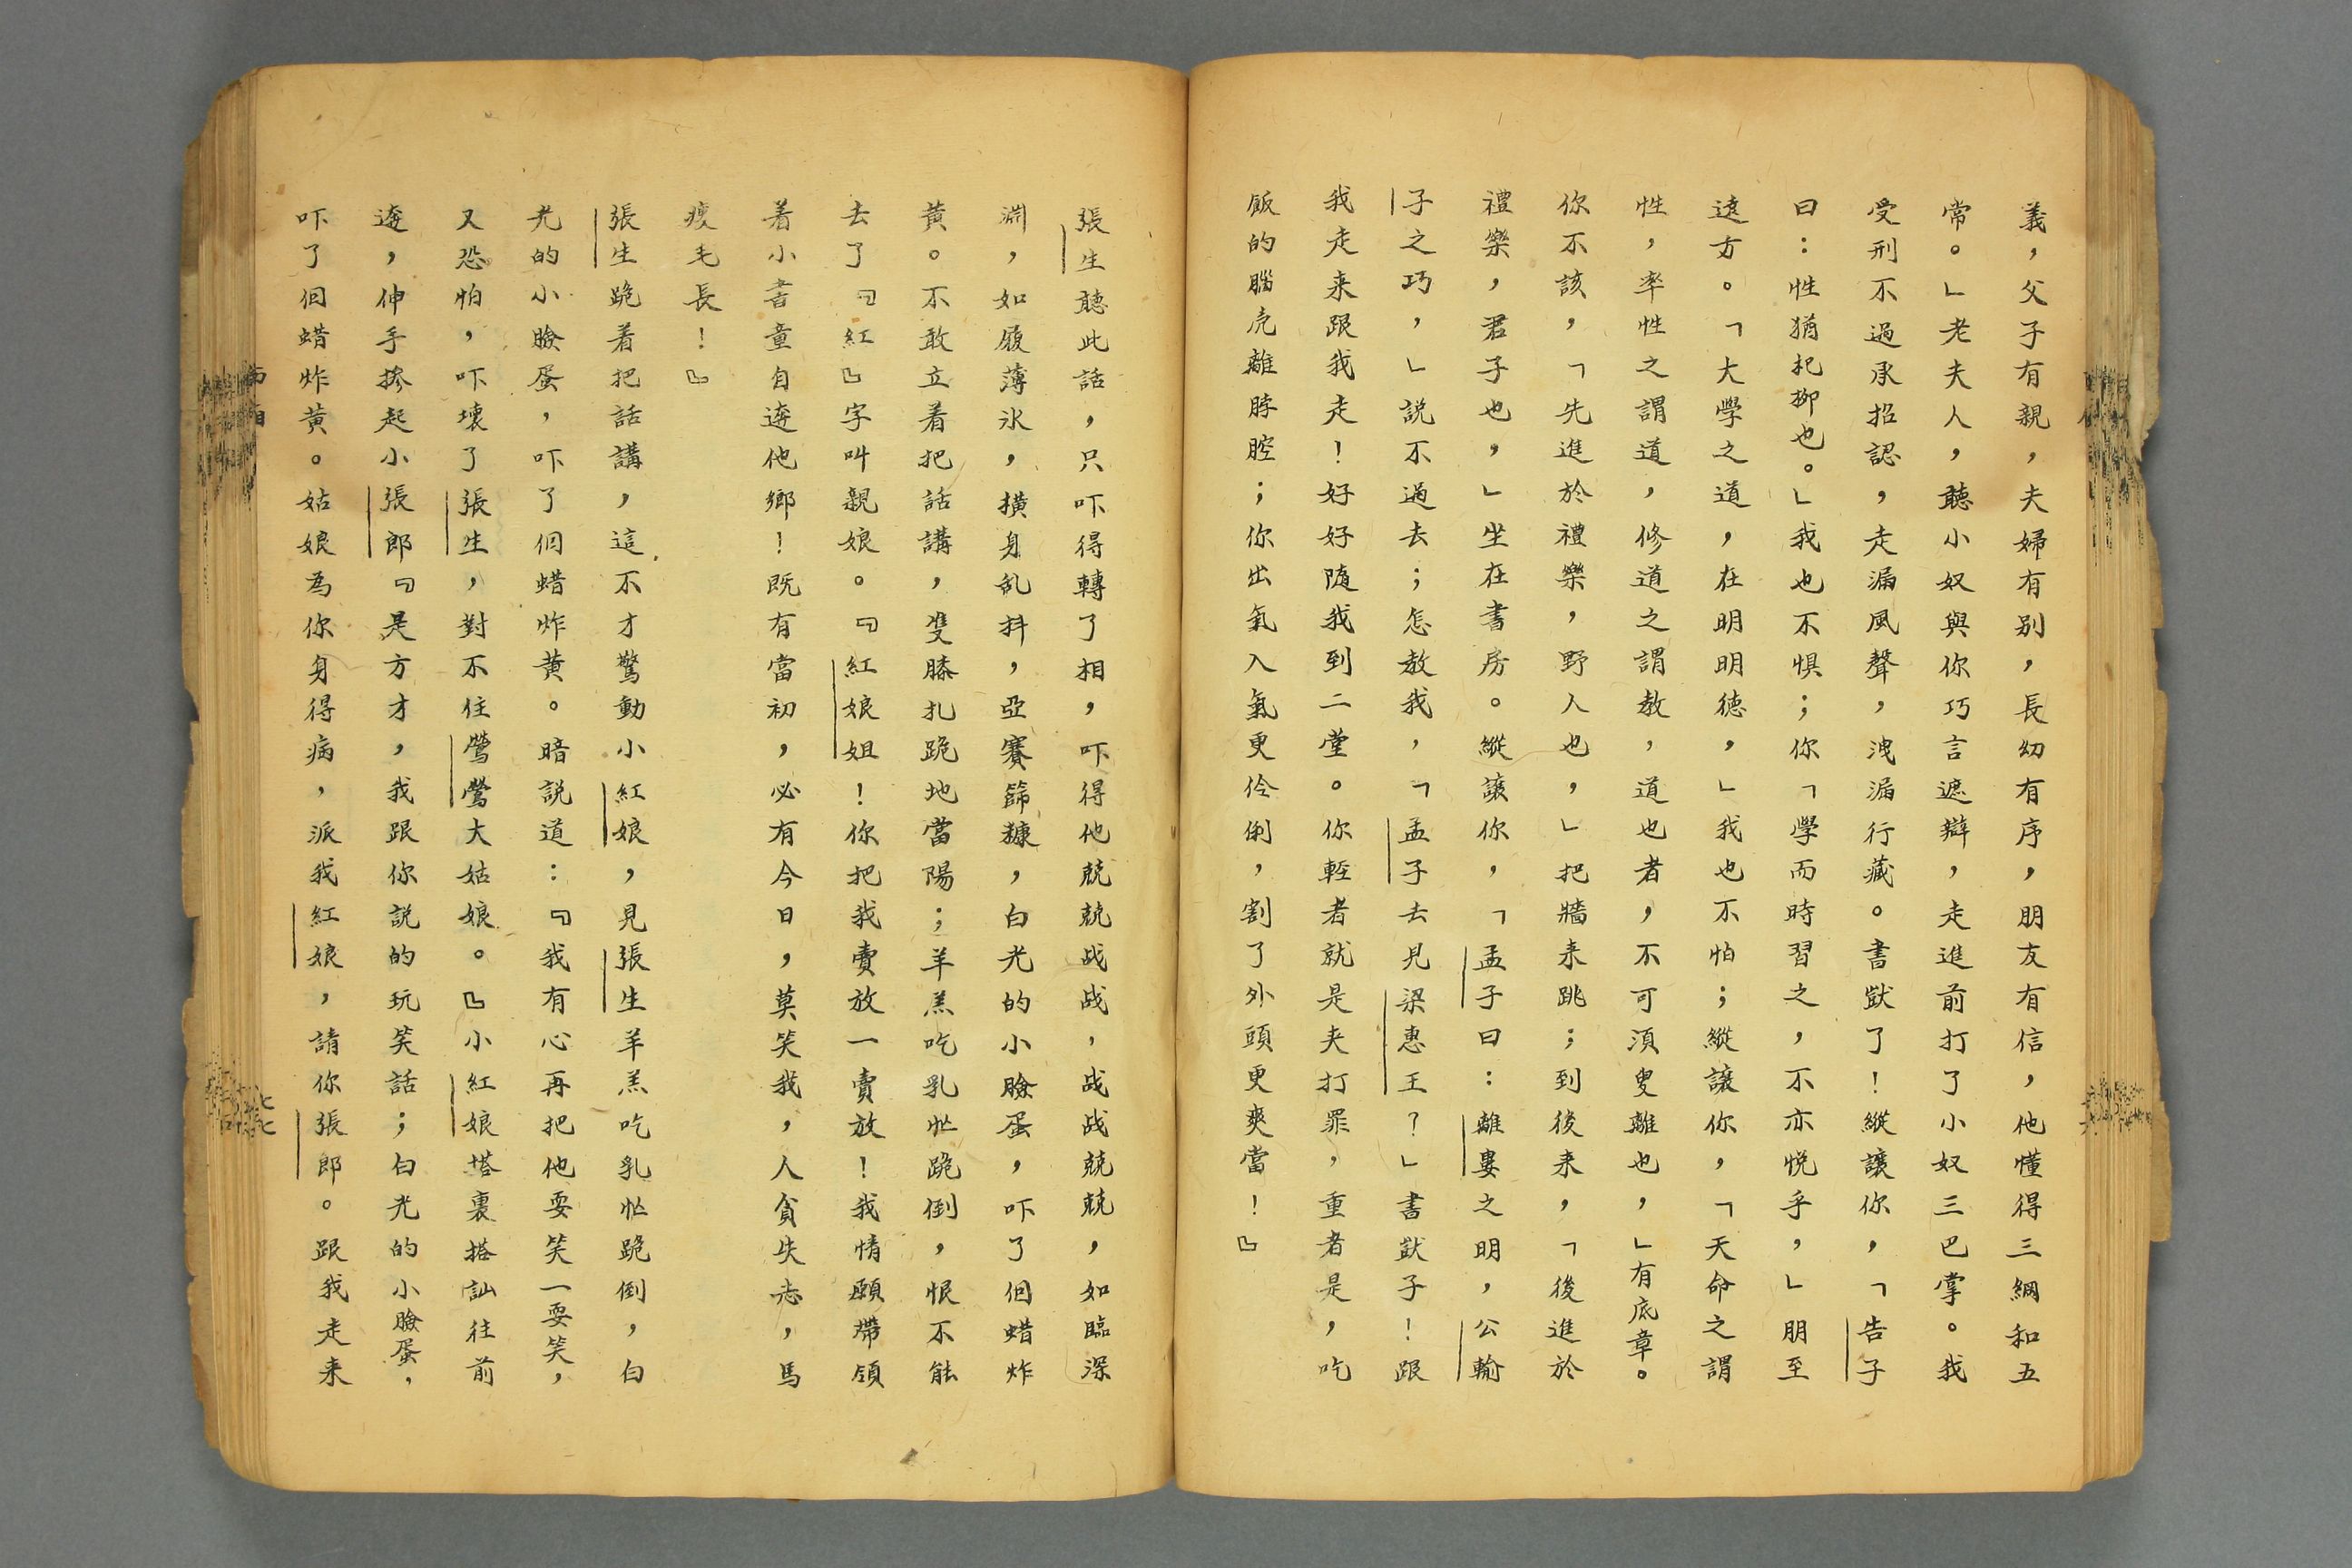 義，父子有親，夫婦有別，長幼有序，朋友有信，他懂得三綱和五
常。」老夫人，聽小奴與你巧言遮辯，走進前打了小奴三巴掌。我
受刑不過承招認，走漏風聲，洩漏行藏。書獃了！縱讓你，「告子
曰：性猶杞柳也。」我也不惧；你「學而時習之，不亦悦乎，」朋至
遠方。「大學之道，在明明德，」我也不怕；縱讓你，「天命之謂
性，率性之謂道，修道之謂教，道也者，不可須臾離也，」有底章。
你不該，「先進於禮樂，野人也，」把牆来跳；到後来，「後進於
禮樂，君子也，」坐在書房。縱讓你，「孟子曰：離婁之明，公輸
子之巧，」説不過去；怎教我，「孟子去見梁惠王？」書獃子！跟
我走来跟我走！好好隨我到二堂。你輕者就是夹打罪，重者是，吃
飯的腦壳離脖腔；你出氣入氣更伶俐，割了外頭更爽當！』
張生聽此話，只吓得轉了相，吓得他兢兢战战，战战兢兢，如臨深
淵，如履薄氷，横身乱抖，亞賽篩糠，白光的小臉蛋，吓了個蜡炸
黄。不敢立着把話講，雙膝扎跪地當陽；羊羔吃乳忙跪倒，恨不能
去了『紅』字叫親娘。『紅娘姐！你把我賣放一賣放！我情願帶領
着小書童自逩他鄉！既有當初，必有今日，莫笑我，人貧失志，馬
瘦毛長！』
張生跪着把話講，這不才驚動小紅娘，見張生羊羔吃乳忙跪倒，白
光的小臉蛋，吓了個蜡炸黄。暗説道：『我有心再把他耍笑一耍笑，
又恐怕，吓壞了張生，對不住鶯鶯大姑娘。』小紅娘塔裏搭訕往前
逩，伸手掺起小張郎『是方才，我跟你説的玩笑話；白光的小臉蛋，
吓了個蜡炸黄。姑娘為你身得病，派我紅娘，請你張郎。跟我走来